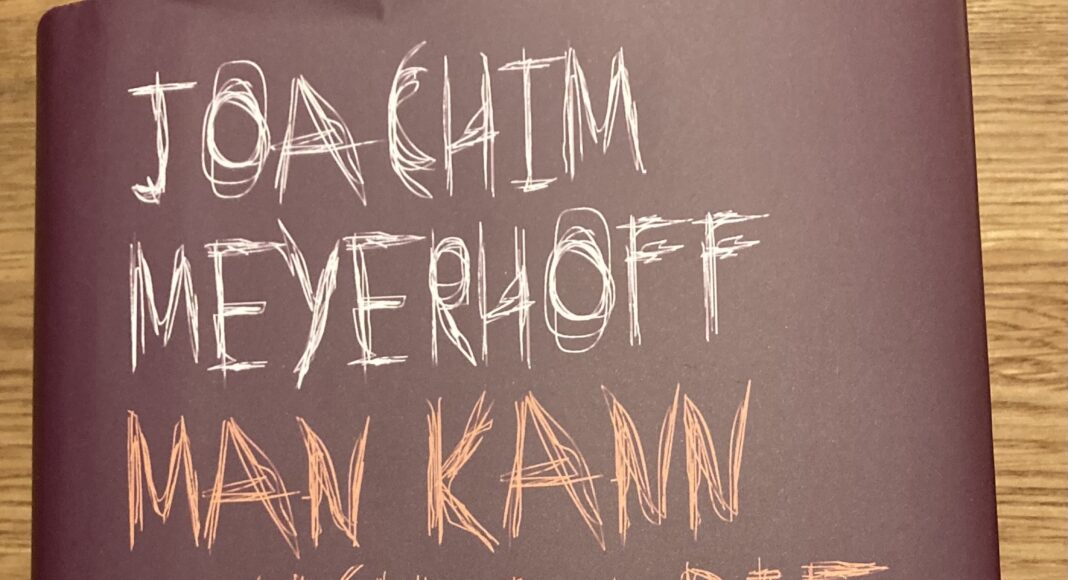 JOACHIM
MEYERHOFF
MAN KANN